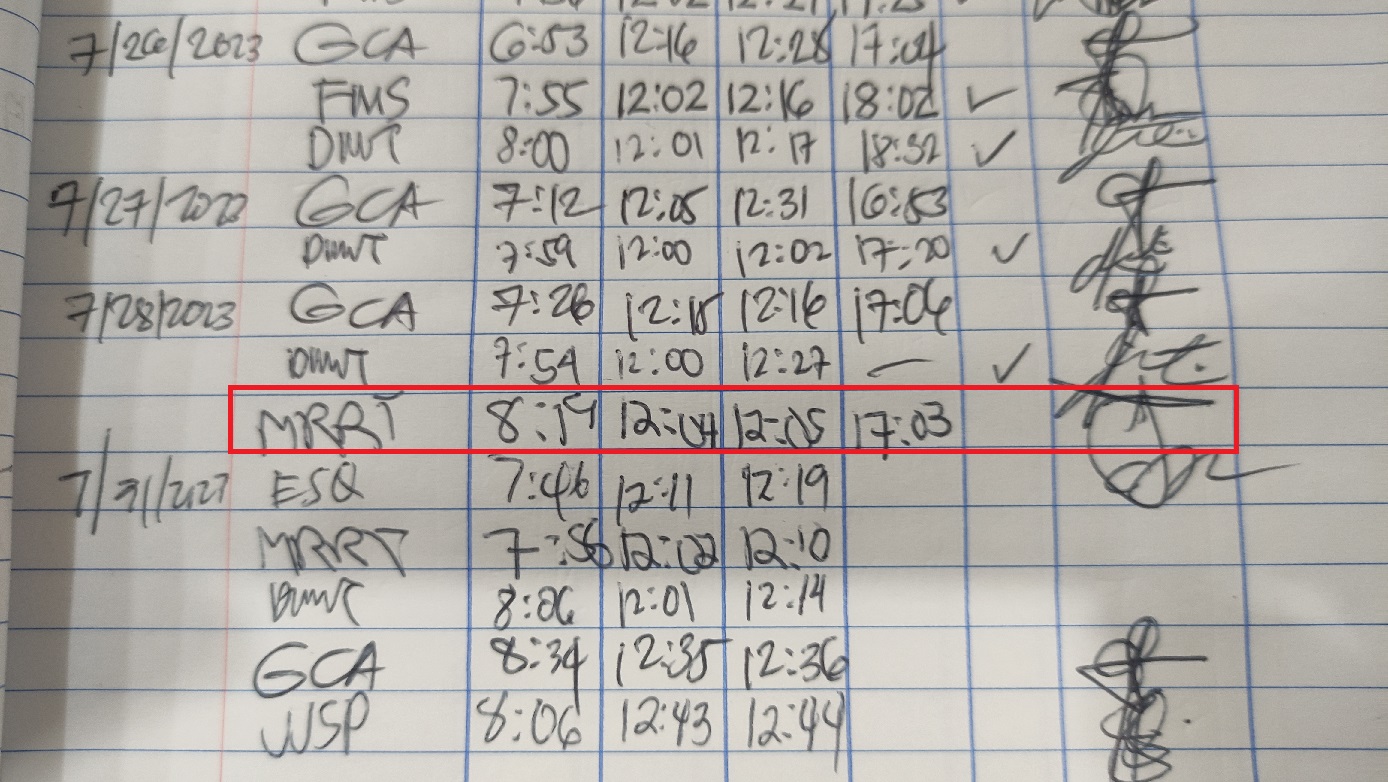 7/26/2023 GCA 6:53 12:16 12:28 17:04
FMS 7:55 12:02 12:16 18:02 ✓
DMWT 8:00 12:01 12:17 18:32 ✓
7/27/2023 GCA 7:12 12:05 12:31 16:53
DMWT 7:59 12:00 12:02 17:20 ✓
7/28/2023 GCA 7:26 12:15 12:16 17:06
DMWT 7:54 12:00 12:27 — ✓
MRRT 8:19 12:04 12:05 17:03
7/31/2023 ESQ 7:46 12:11 12:19
MRRT 7:56 12:02 12:10
DMWT 8:06 12:01 12:14
GCA 8:34 12:35 12:36
JJSP 8:06 12:43 12:44